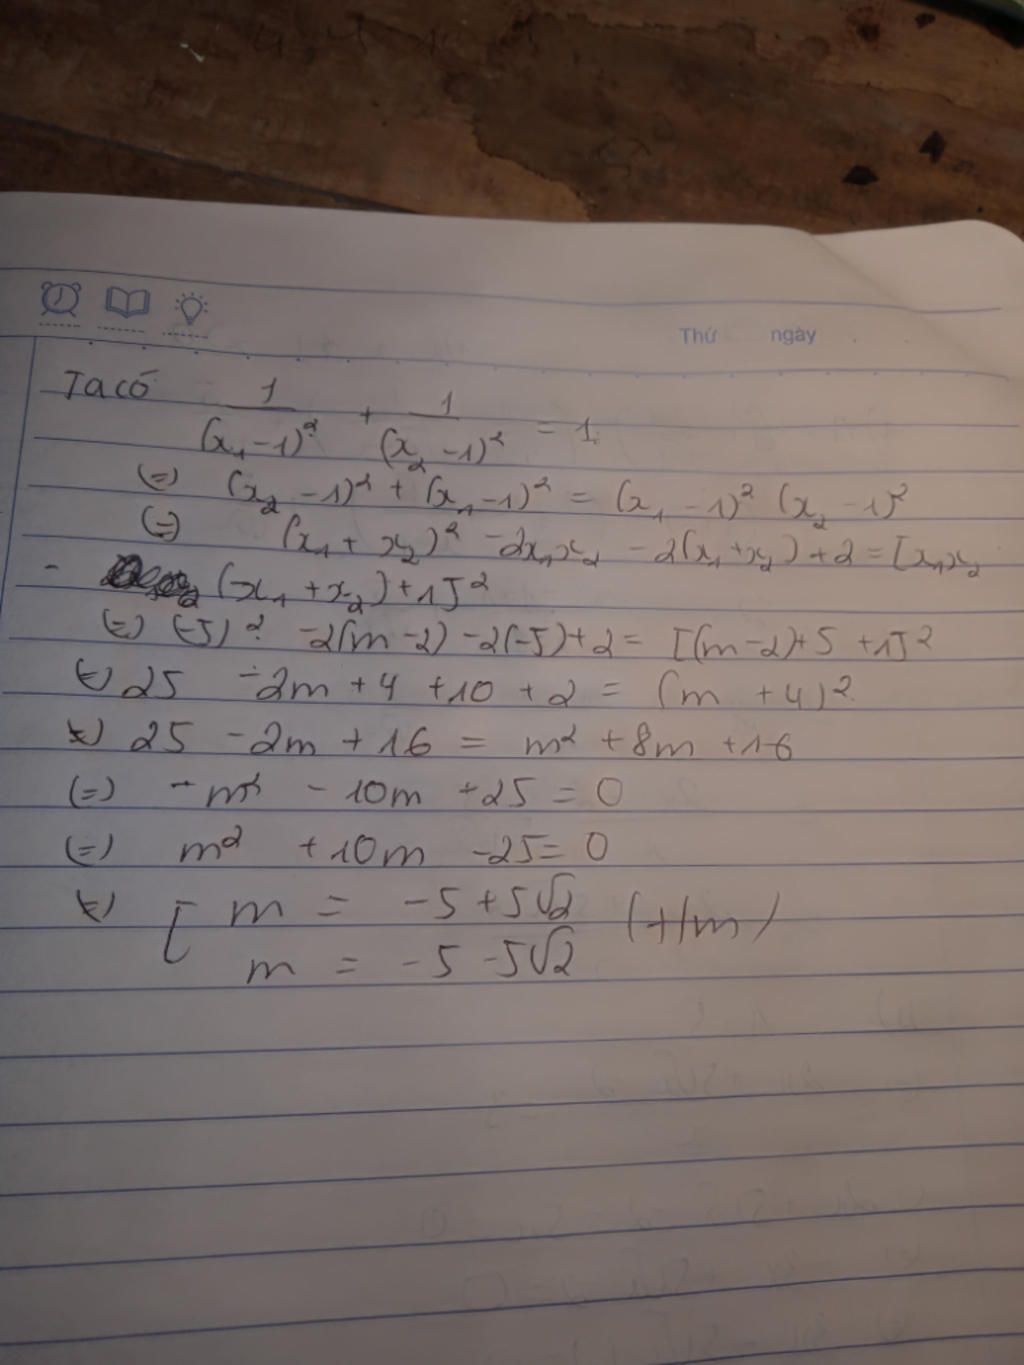 Thứ ngày
Ta có 1/(x₁-1)² + 1/(x₂-1)² = 1.
(=) (x₂-1)² + (x₁-1)² = (x₁-1)² (x₂-1)²
(=) (x₁+x₂)² -2x₁x₂ -2(x₁+x₂)+2 = [x₁x₂
- (x₁+x₂)+1]²
(=) (-5)² -2(m-2) -2(-5)+2 = [(m-2)+5+1]²
(=) 25 -2m+4 +10 +2 = (m+4)²
(=) 25 -2m +16 = m² +8m +16
(=) -m² -10m +25 = 0
(=) m² +10m -25 = 0
(=) [ m = -5+5√2 (t/m)
m = -5-5√2